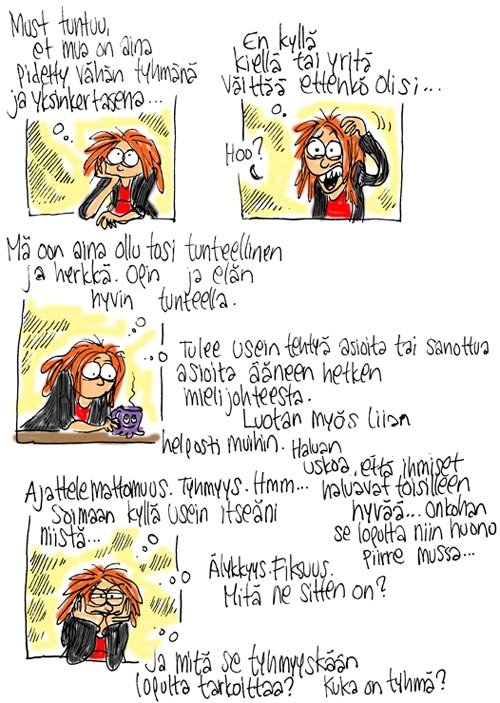 Must tuntuu,
et mua on aina
pidetty vähän tyhmänä
ja yksinkertasena...
En kyllä
kiellä tai yritä
väittää ettenkö olisi...
Hoo?
Mä oon aina ollu tosi tunteellinen
ja herkkä. Olin ja elän
hyvin tunteella.
Tulee usein tehtyä asioita tai sanottua
asioita ääneen hetken
mielijohteesta.
Luotan myös liian
helposti muihin. Haluan
uskoa, että ihmiset
haluavat toisilleen
hyvää... onkohan
se lopulta niin huono
piirre mussa...
Ajattelemattomuus. Tyhmyys. Hmm...
Soimaan kyllä usein itseäni
niistä...
Älykkyys. Fiksuus.
Mitä ne sitten on?
Ja mitä se tyhmyyskään
lopulta tarkoittaa? Kuka on tyhmä?